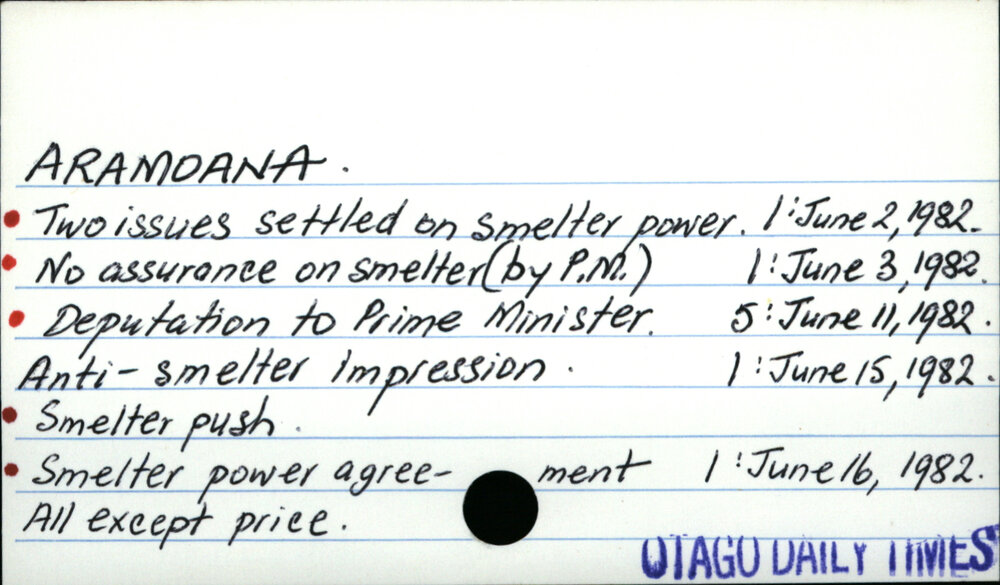 ARAMOANA.
Two issues settled on smelter power. 1: June 2, 1982.
No assurance on smelter (by P.M.) 1: June 3, 1982.
Deputation to Prime Minister. 5: June 11, 1982.
Anti-smelter Impression. 1: June 15, 1982.
Smelter push.
Smelter power agree- ment 1: June 16, 1982.
All except price.
OTAGO DAILY TIMES